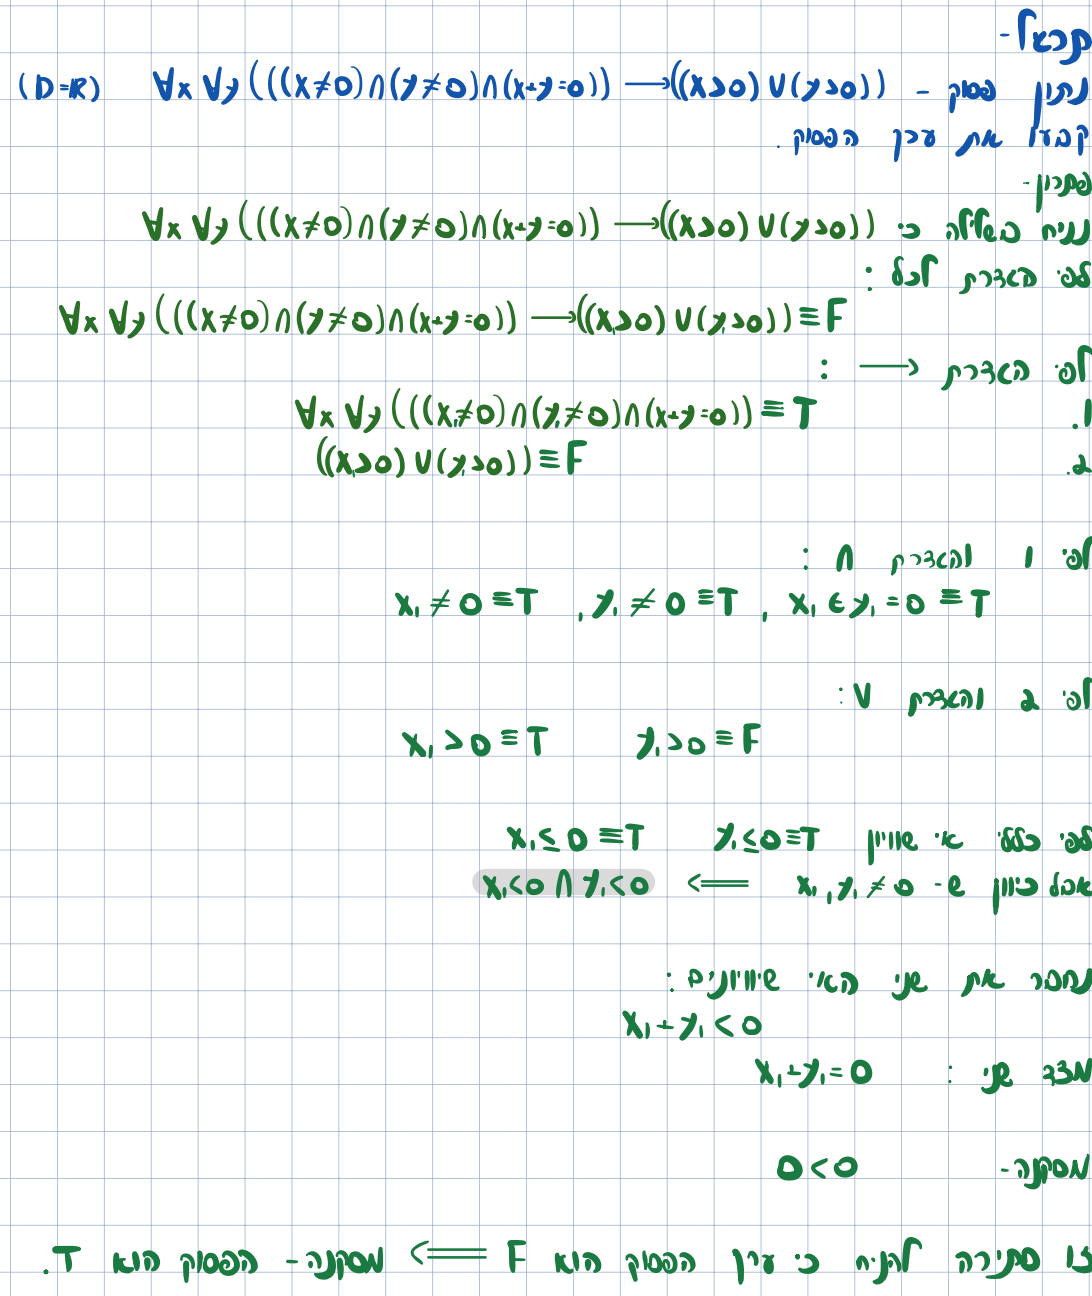 תרגאל -
נתון פסוק - ∀x ∀y (((x≠0)∩(y≠0)∩(x+y=0)) ⟶((x>0) ∪ (y>0)) (D=ℝ)
קבעו את ערך הפסוק.
פתרון -
נניח בשלילה כי ∀x ∀y (((x≠0)∩(y≠0)∩(x+y=0)) ⟶((x>0) ∪ (y>0))
לפי הגדרת לכל :
∀x ∀y (((x≠0)∩(y≠0)∩(x+y=0)) ⟶((x₁>0) ∪ (y₁>0)) ≡ F
לפי הגדרת ⟶ :
1. ∀x ∀y (((x₁≠0)∩(y₁≠0)∩(x+y=0)) ≡ T
2. ((x₁>0) ∪ (y₁>0)) ≡ F
לפי 1 והגדרת ∩ :
x₁ ≠ 0 ≡ T , y₁ ≠ 0 ≡ T , x₁ + y₁ = 0 ≡ T
לפי 2 והגדרת ∪ :
x₁ > 0 ≡ T y₁ > 0 ≡ F
לפי כללי אי שוויון x₁ ≤ 0 ≡ T y₁ ≤ 0 ≡ T
אבל כיוון ש- x₁, y₁ ≠ 0 ⟸ x₁ < 0 ∩ y₁ < 0
נחבר את שני האי שיוויונים :
x₁ + y₁ < 0
מצד שני : x₁ + y₁ = 0
מסקנה - 0 < 0
זו סתירה להניח כי ערך הפסוק הוא F ⟸ מסקנה - הפסוק הוא T.